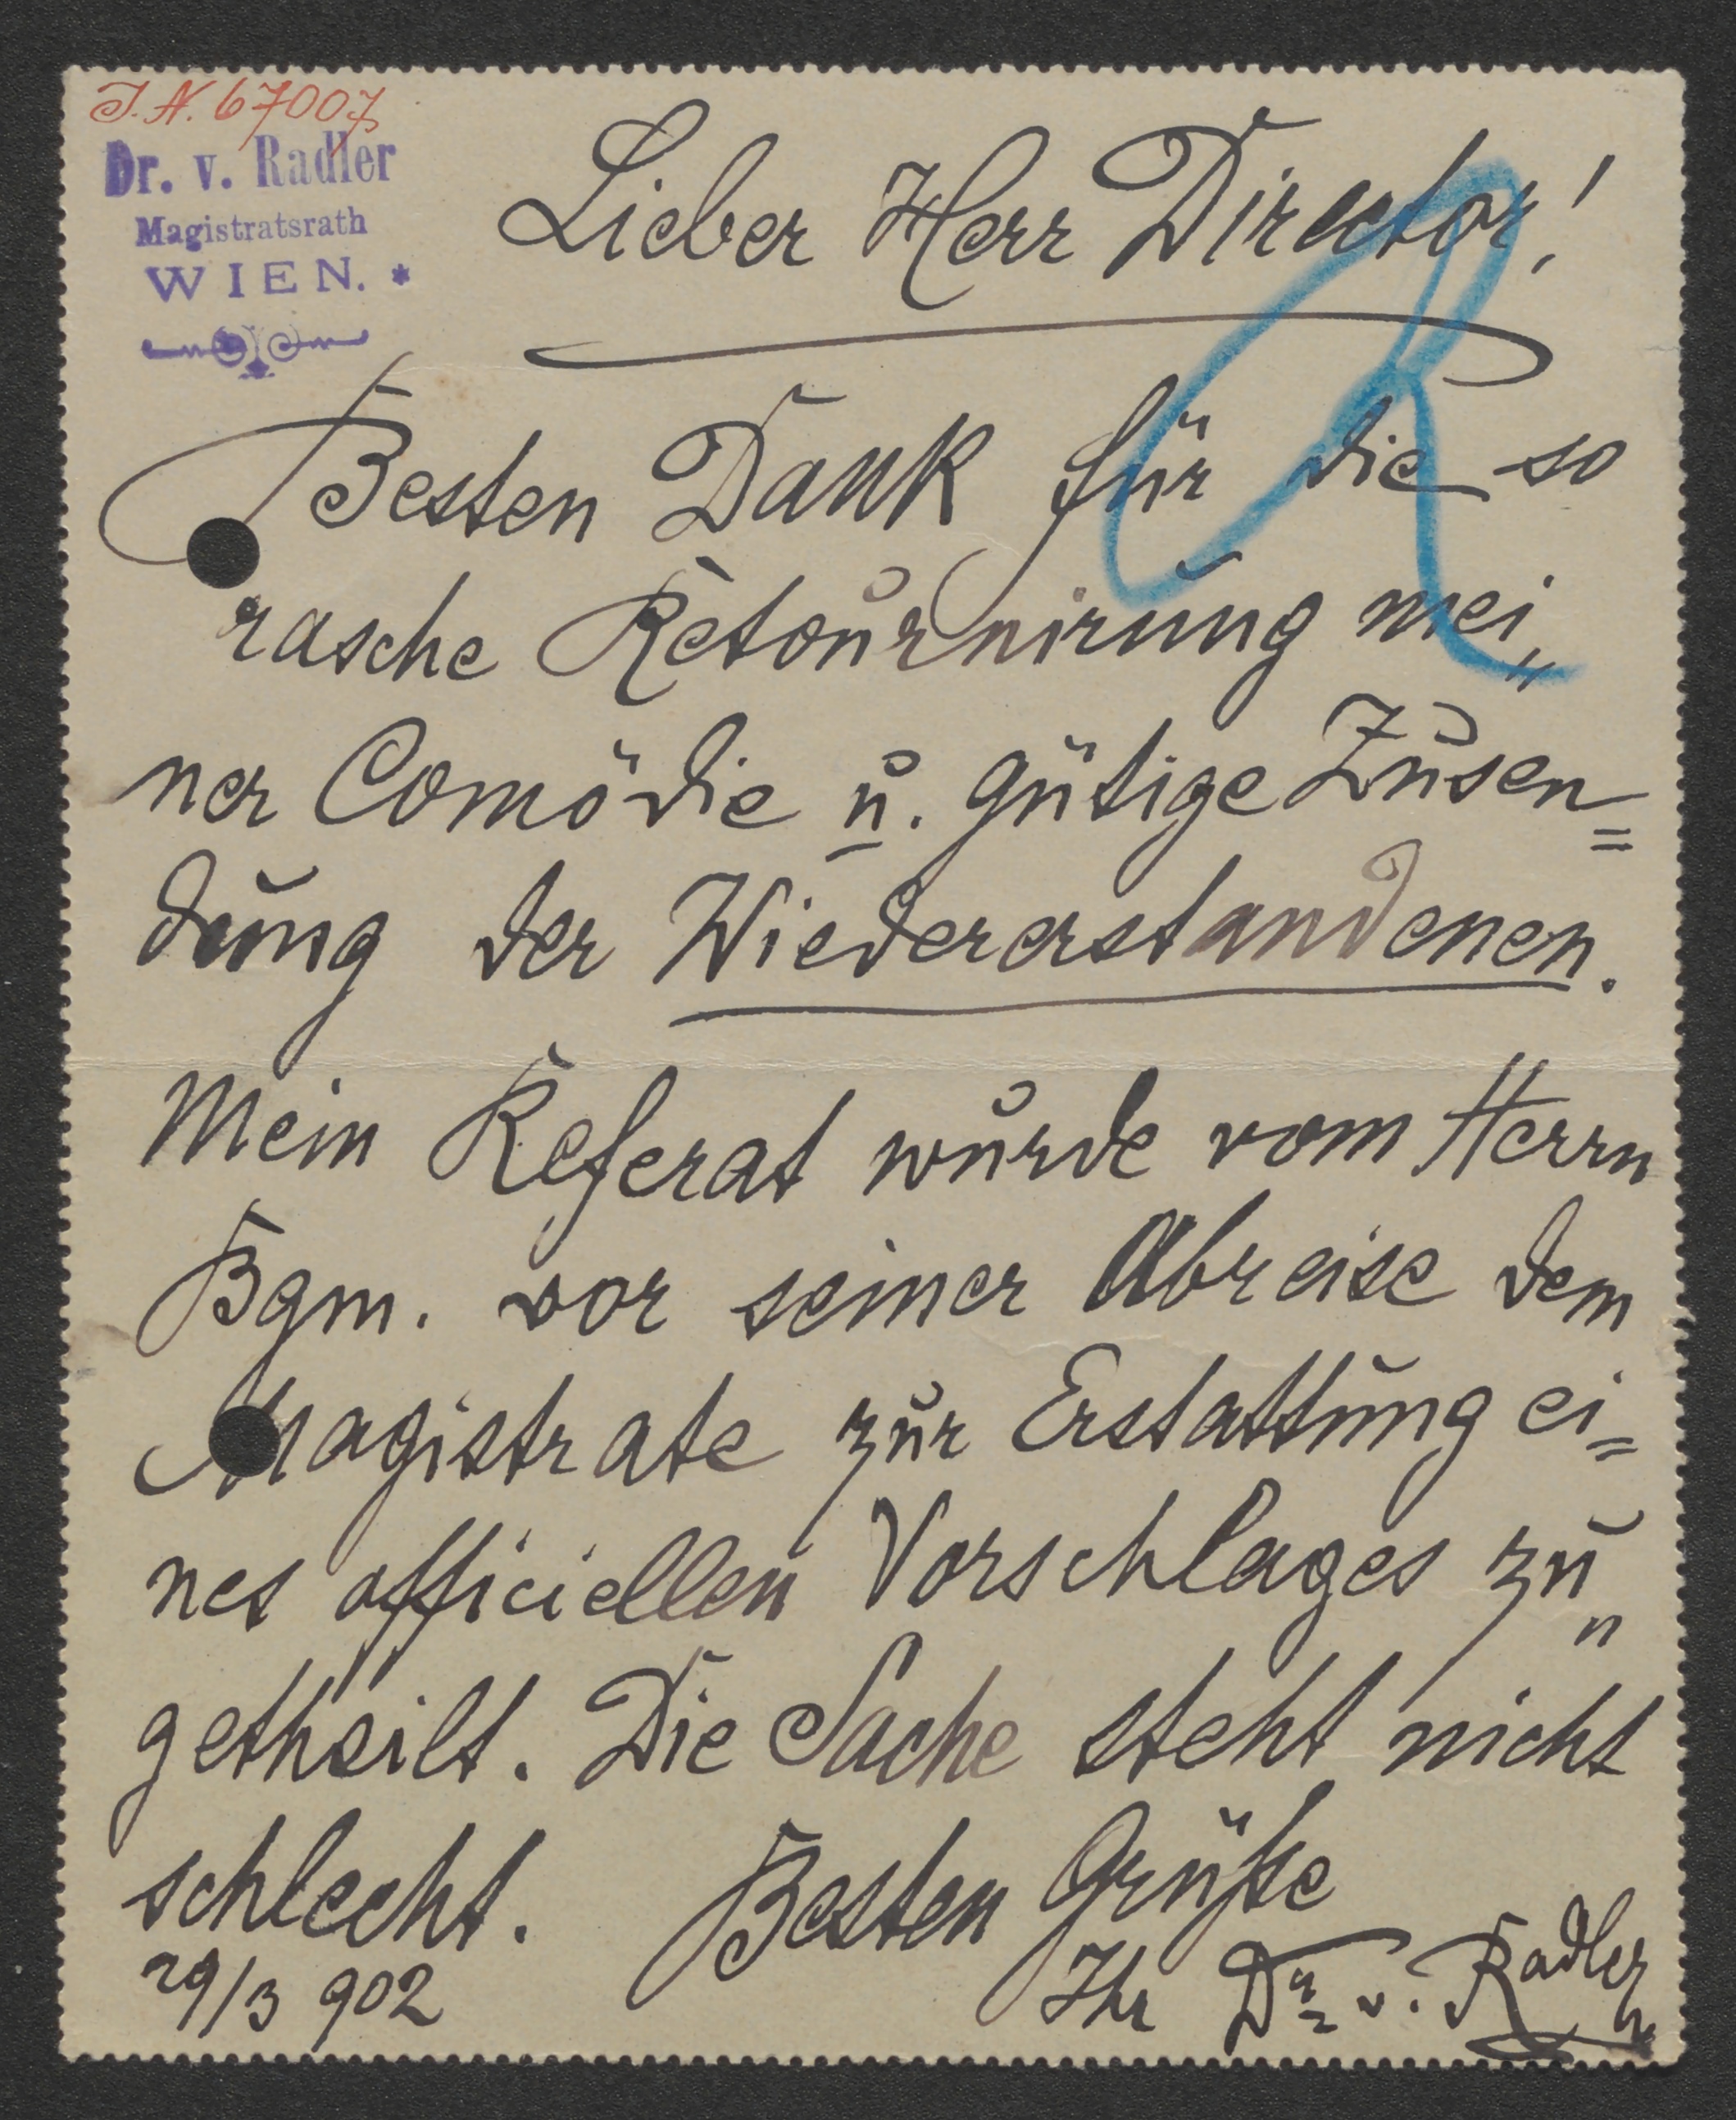 J.N. 67007
Dr. v. Radler
Magistratsrath
WIEN. *
Lieber Herr Director!
R
Besten Dank für die so
rasche Retournirung mei„
ner Comödie u. gütige Zusen=
dung der Wiedererstandenen.
Mein Referat wurde vom Herrn
Bgm. vor seiner Abreise dem
Magistrate zur Erstattung ei=
nes officiellen Vorschlages zu„
getheilt. Die Sache steht nicht
schlecht. Besten Grüße
29/3 902 Ihr Dr. v. Radler